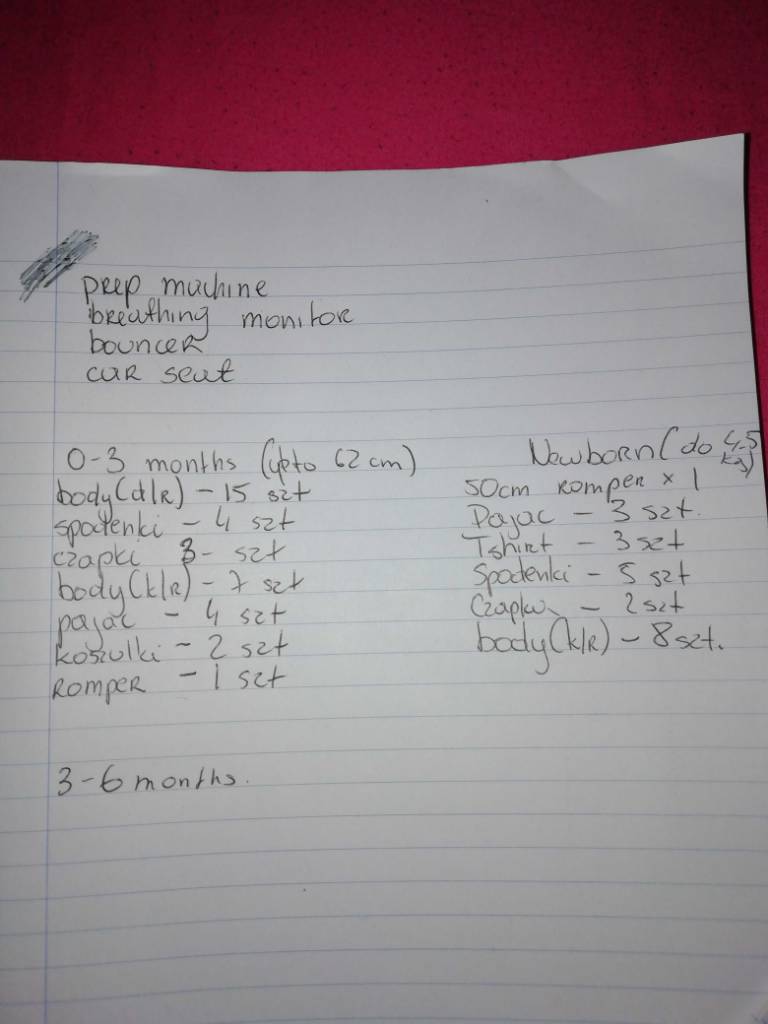 prep machine
breathing monitor
bouncer
car seat
0-3 months (upto 62 cm)
body(dłR) - 15 szt
spodenki - 4 szt
czapki 3- szt
body(k/R) - 7 szt
pajac - 4 szt
koszulki - 2 szt
Romper - 1 szt
Newborn (do 4,5 kg)
50cm romper x 1
Pajac - 3 szt.
Tshirt - 3 szt
Spodenki - 5 szt
Czapki - 2 szt
body(k/R) - 8 szt.
3-6 months.